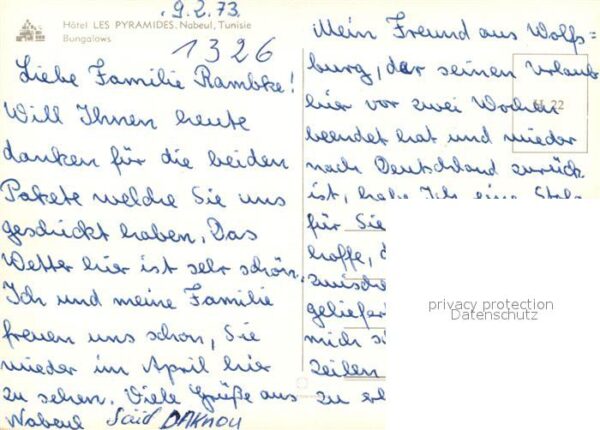 .9.2.73.
Hôtel LES PYRAMIDES. Nabeul, Tunisie
Bungalows
1326
Liebe Familie Rambke!
Will Ihnen heute
danken für die beiden
Pakete welche Sie uns
geschickt haben. Das
Wetter hier ist sehr schön.
Ich und meine Familie
freuen uns schon, Sie
wieder im April hier
zu sehen. Viele Grüße aus
Nabeul Said DAKHOU
Mein Freund aus Wolfs=
burg, der seinen Urlaub
hier vor zwei Wochen
beendet hat und wieder
nach Deutschland zurück
ist, habe Ich eine
für Sie
hoffe,
zwische
geliefer
mich
Zeilen
zu
22
privacy protection
Datenschutz